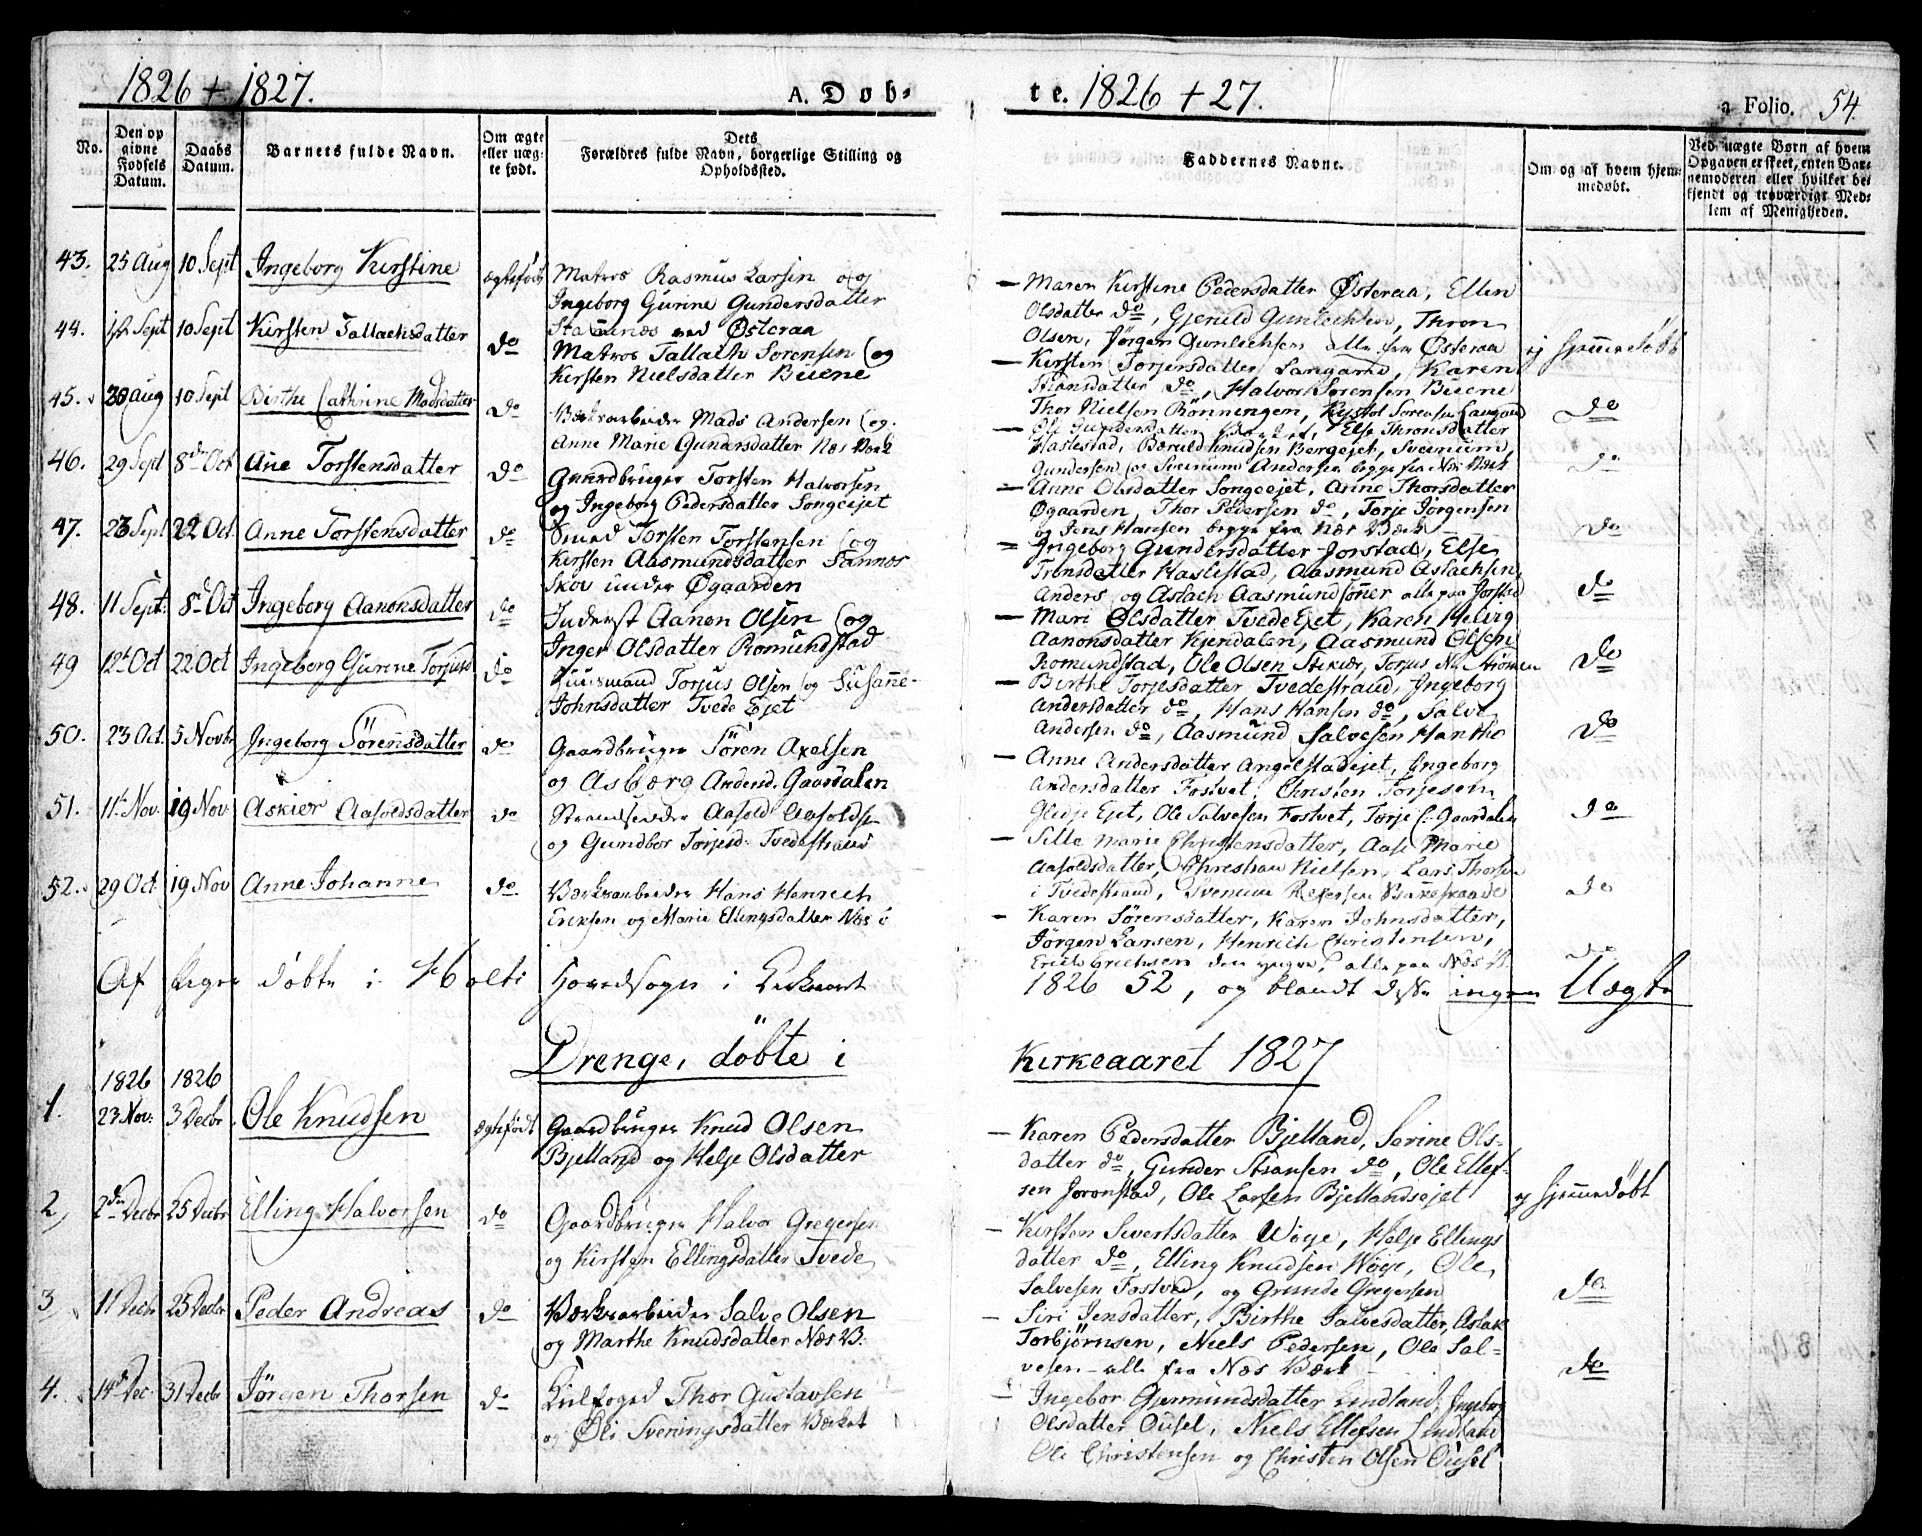 1826 + 1827.
A. Døb-
te. 1826 + 27.
Folio. 54.
No.
Den op
givne
Fødsels
Datum.
Daabs
Datum.
Barnets fulde Navn.
Om ægte
eller uæg-
te født.
Dets
Forældres fulde Navn, borgerlige Stilling og
Opholdssted.
Faddernes Navne.
Om og af hvem hjem-
medøbt.
Ved uægte Børn af hvem
Opgaven er skeet, enten Bar-
nemoderen eller hvilket be-
kjendt og troværdigt Med-
lem af Menigheden.
43. 25 Aug 10 Sept Ingeborg Kirstine ægtefødt Matros Rasmus Larsen og
Ingeborg Gurine Gundersdatter
Østeraa
— Maren Kirstine Pedersdatter Østeraa, Ellen
Olsdatter do, Thron
Olsen, Jørgen Gunlechsen alle fra Østeraa
44. Sept 10 Sept Kirsten Tallachsdatter do Matros Tallach Sørensen og
Kirsten Nielsdatter Buene
— Kirsten Torjersdatter Langang, Karen
datter do, Halvor Sørensen Buene
Thor Nielsen Rönningen, Sørensen
ej hjemmedøbt
45. 30 Aug 10 Sept Birthe Cathrine Madsdatter do Værksarbeider Mads Andersen og
Anne Marie Gundersdatter Næs Værk
Else Thronsdatter
Haslestad, Knudsen Bergejet,
Gundersen og Andersen begge fra Næs Værk
do
46. 29 Sept 8de Oct Ane Torstensdatter do Gaardbruger Torsten Halvorsen
og Ingeborg Pedersdatter Songeejet
— Anne Olsdatter Songeejet, Anne Thorsdatter
Øgaarden, Thor Pedersen do, Torje Jörgensen
og Jens Hansen begge fra Næs Værk
do
47. 23 Sept 22 Oct. Anne Torstensdatter do Smed Torsten Torstensen og
Kirsten Aasmundsdatter
Skov under Øgaarden
— Ingeborg Gundersdatter Jorstad, Else
Tronsdatter Haslestad, Aasmund Aslachsen,
Anders og Aslach Aasmundsønner alle paa Jorstad
do
48. 11 Sept: 8de Oct Ingeborg Aanonsdatter do Inderst Aanon Olsen og
Inger Olsdatter Romundstad
— Mari Olsdatter Tvede Ejet, Karen Helvig
Aanonsdatter Kjendalen, Aasmund Olsen
Romundstad, Ole Olsen Torjus
do
49 12te Oct 22 Oct Ingeborg Gurine Torjusd do Huusmand Torjus Olsen og Susanne
Johnsdatter Tvede Ejet
— Birthe Torjesdatter Tvedestrand, Ingeborg
Andersdatter do, Hans Hansen do, Salve
Andersen do, Aasmund Salvesen Hantho
do
50. 23 Oct. 5 Novbr Ingeborg Sörensdatter do Gaardbruger Sören Axelsen
og Asbørg Andersd. Gaasdalen
— Anne Andersdatter Angelstadejet, Ingeborg
Andersdatter Fostvet, Christen Torjesen
Ejet, Ole Salvesen Fostvet, Torje
do
51. 11te Nov. 19 Nov. Askier Aasoldsdatter do Strandsidder Aasold Aasolds
og Gundbor Torjesd. Tvedestrand
— Sille Marie Christensdatter, Aase Marie
Aasoldsdatter, Christian Nielsen, Lars Thorsen
i Tvedestrand,
do
52. 29 Oct. 19 Nov Anne Johanne do Værksarbeider Hans Henrich
Ericksen og Marie Ellingsdatter Næs
— Karen Sörensdatter, Karen Johnsdatter,
Jörgen Larsen, Henrich Christensen,
Erich Erichsen den yngre, alle paa Næs V.
do
Af Piger döbte i Holts Hovedsogn i Kirkeaaret
1826 52, og blandt disse ingen Uægte
Drenge, döbte i Kirkeaaret 1827
1826 1826
1. 23 Nov: 3 Decbr. Ole Knudsen ægtefødt Gaardbruger Knud Olsen
Bjelland og Helje Olsdatter
— Karen Pedersdatter Bjelland, Serine Ols-
datter do, Gunder do, Ole Ellef-
sen Joronstad, Ole Larsen Bjellandsejet
ej hjemmedøbt
2, 2den Decbr 25 Decbr Elling Halvorsen do Gaardbruger Halvor Gregersen
og Kirsten Ellingsdatter Tvede
— Kirsten Sivertsdatter Wöye, Helje Ellings
datter do, Elling Knudsen Wöye, Ole
Salvesen Fostved, og Grunde Gregersen
do
3, 11te Decbr 25 Decbr Peder Andreas do Værksarbeider Salve Olsen
og Marthe Knudsdatter Næs V:
— Siri Jensdatter, Birthe Salvesdatter, Aslak
Torbjörnsen, Niels Pedersen, Ole Sal-
vesen alle fra Næs Værk
do
4. 14de Dec 31 Decbr Jörgen Thorsen do Thor Gustavsen
og Sveningsdatter Værket
— Ingebor Gjermundsdatter Lindland, Ingeborg
Olsdatter Ousel, Niels Ellefsen Lindland
Ole Christensen og Christen Olsen Ousel